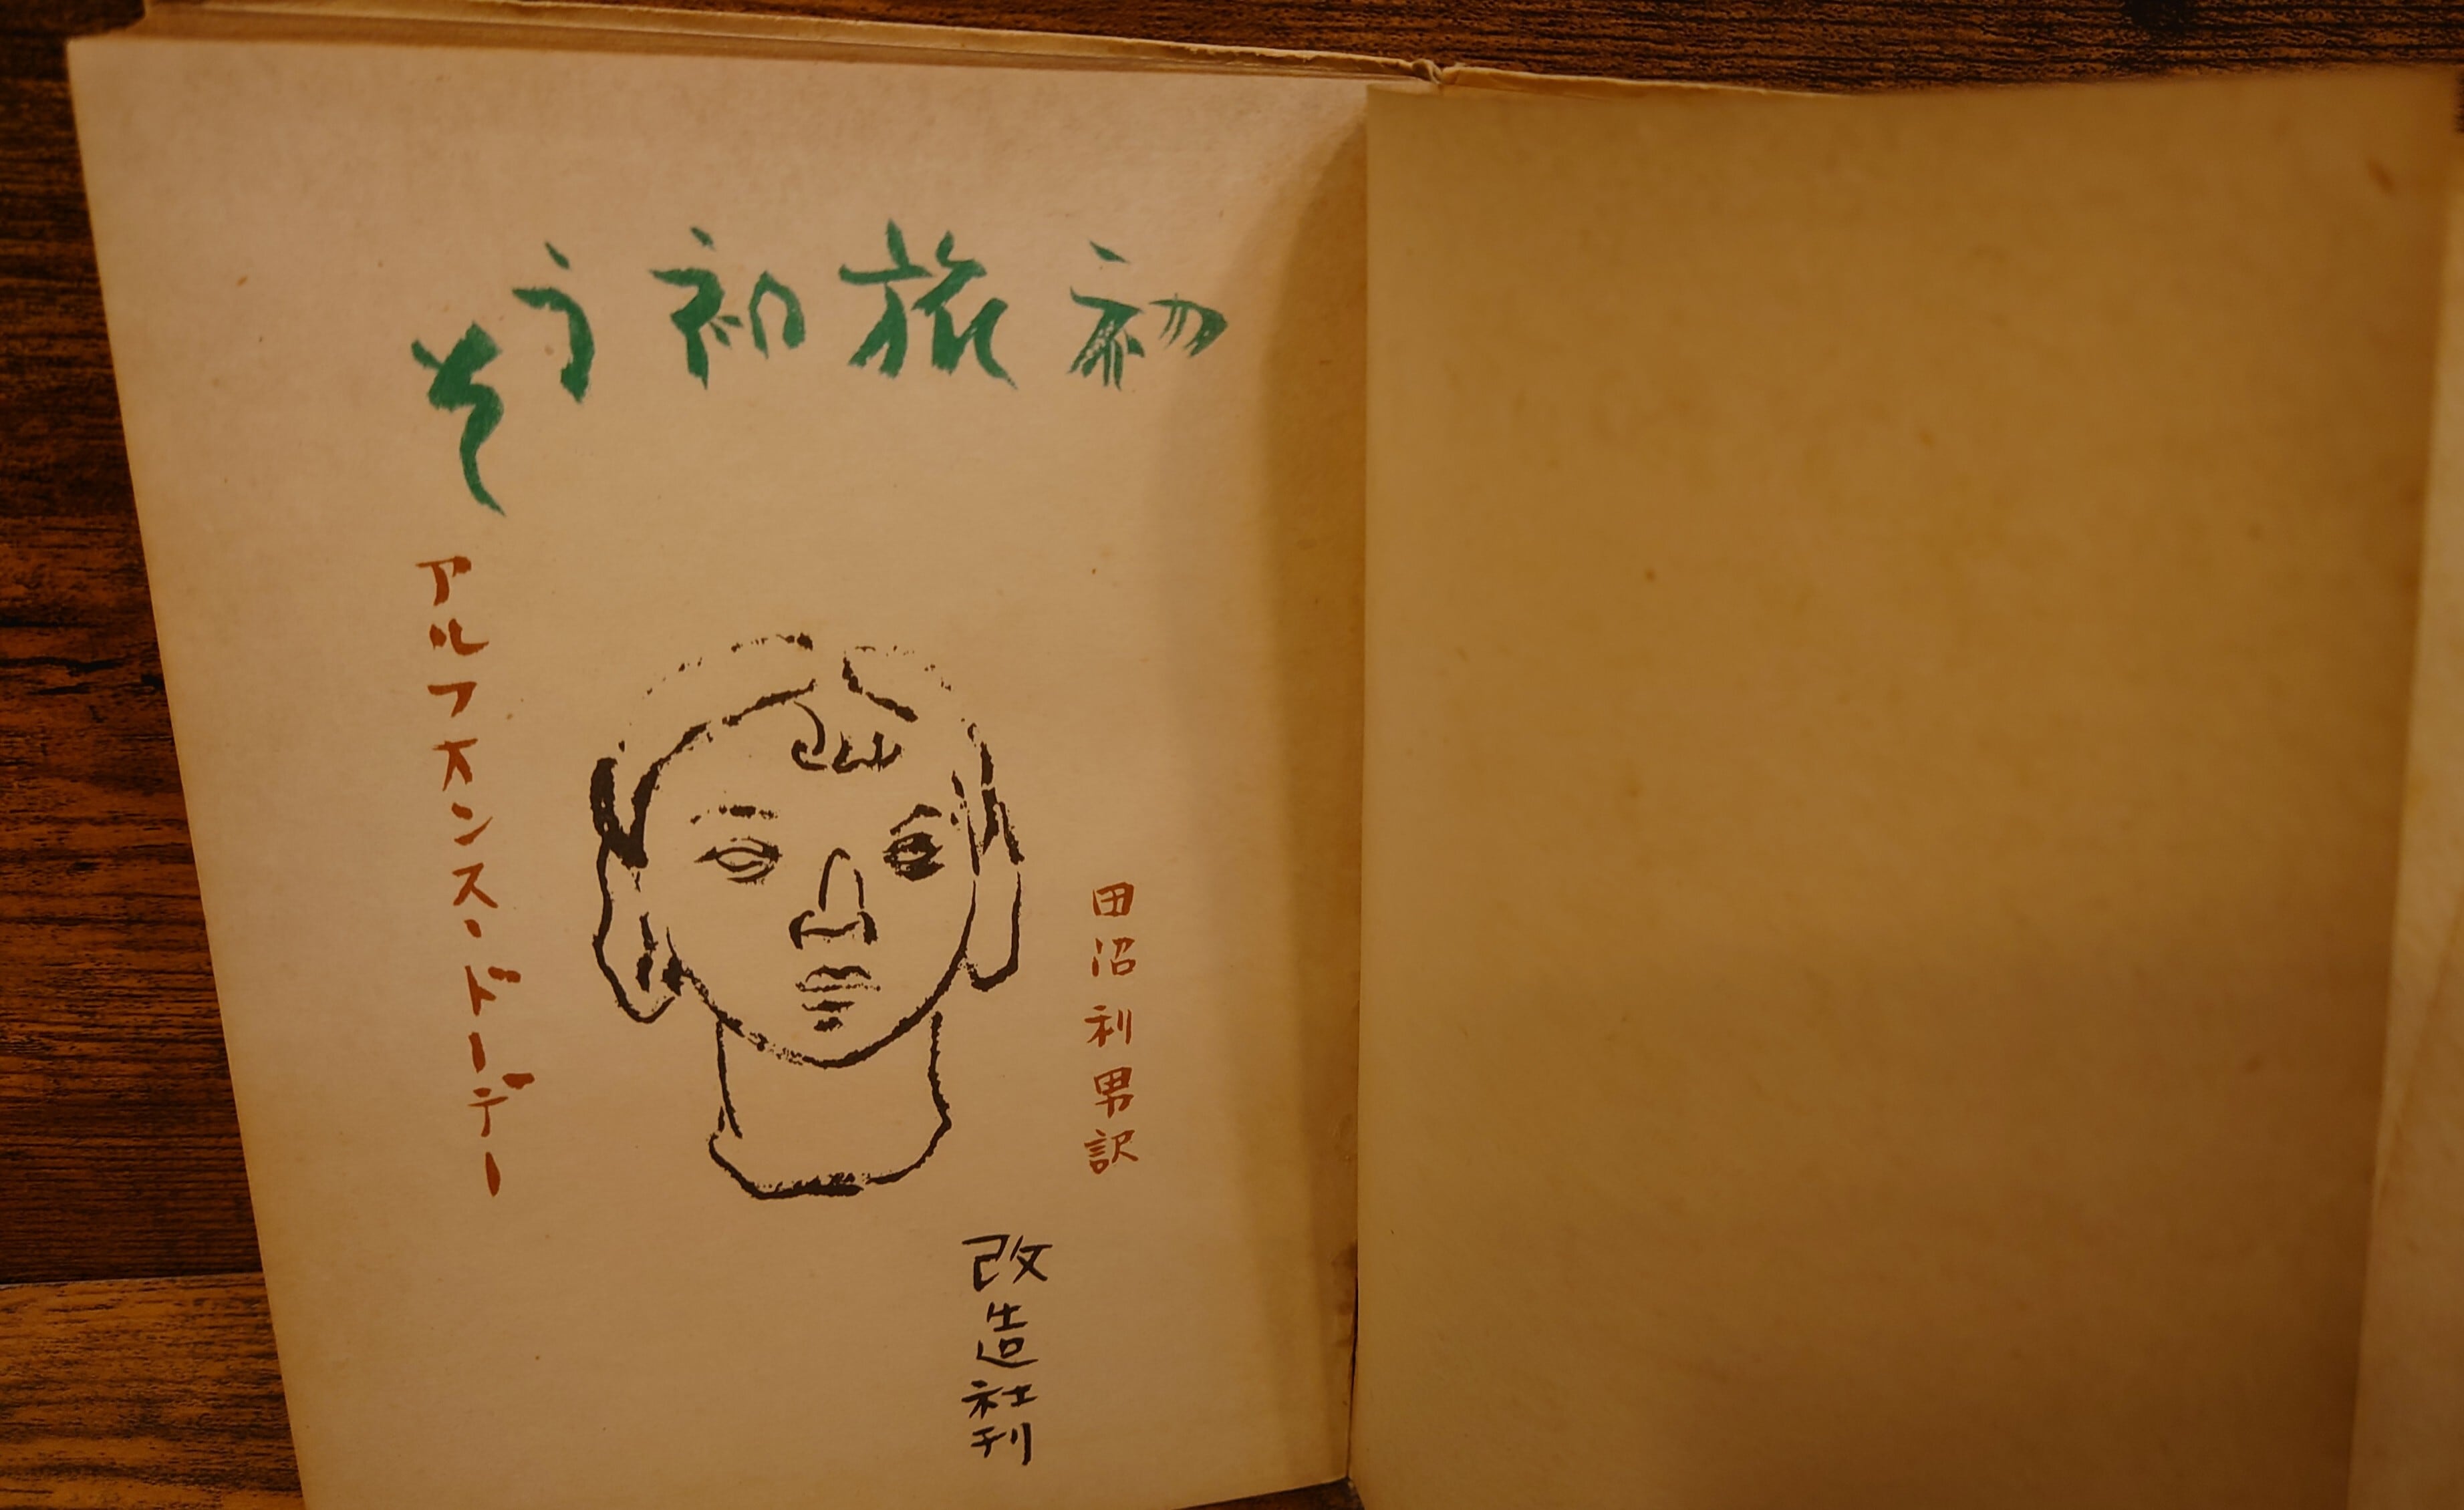 初旅初うそ
アルフオンス・ドーデー
田沼利男訳
改造社刊